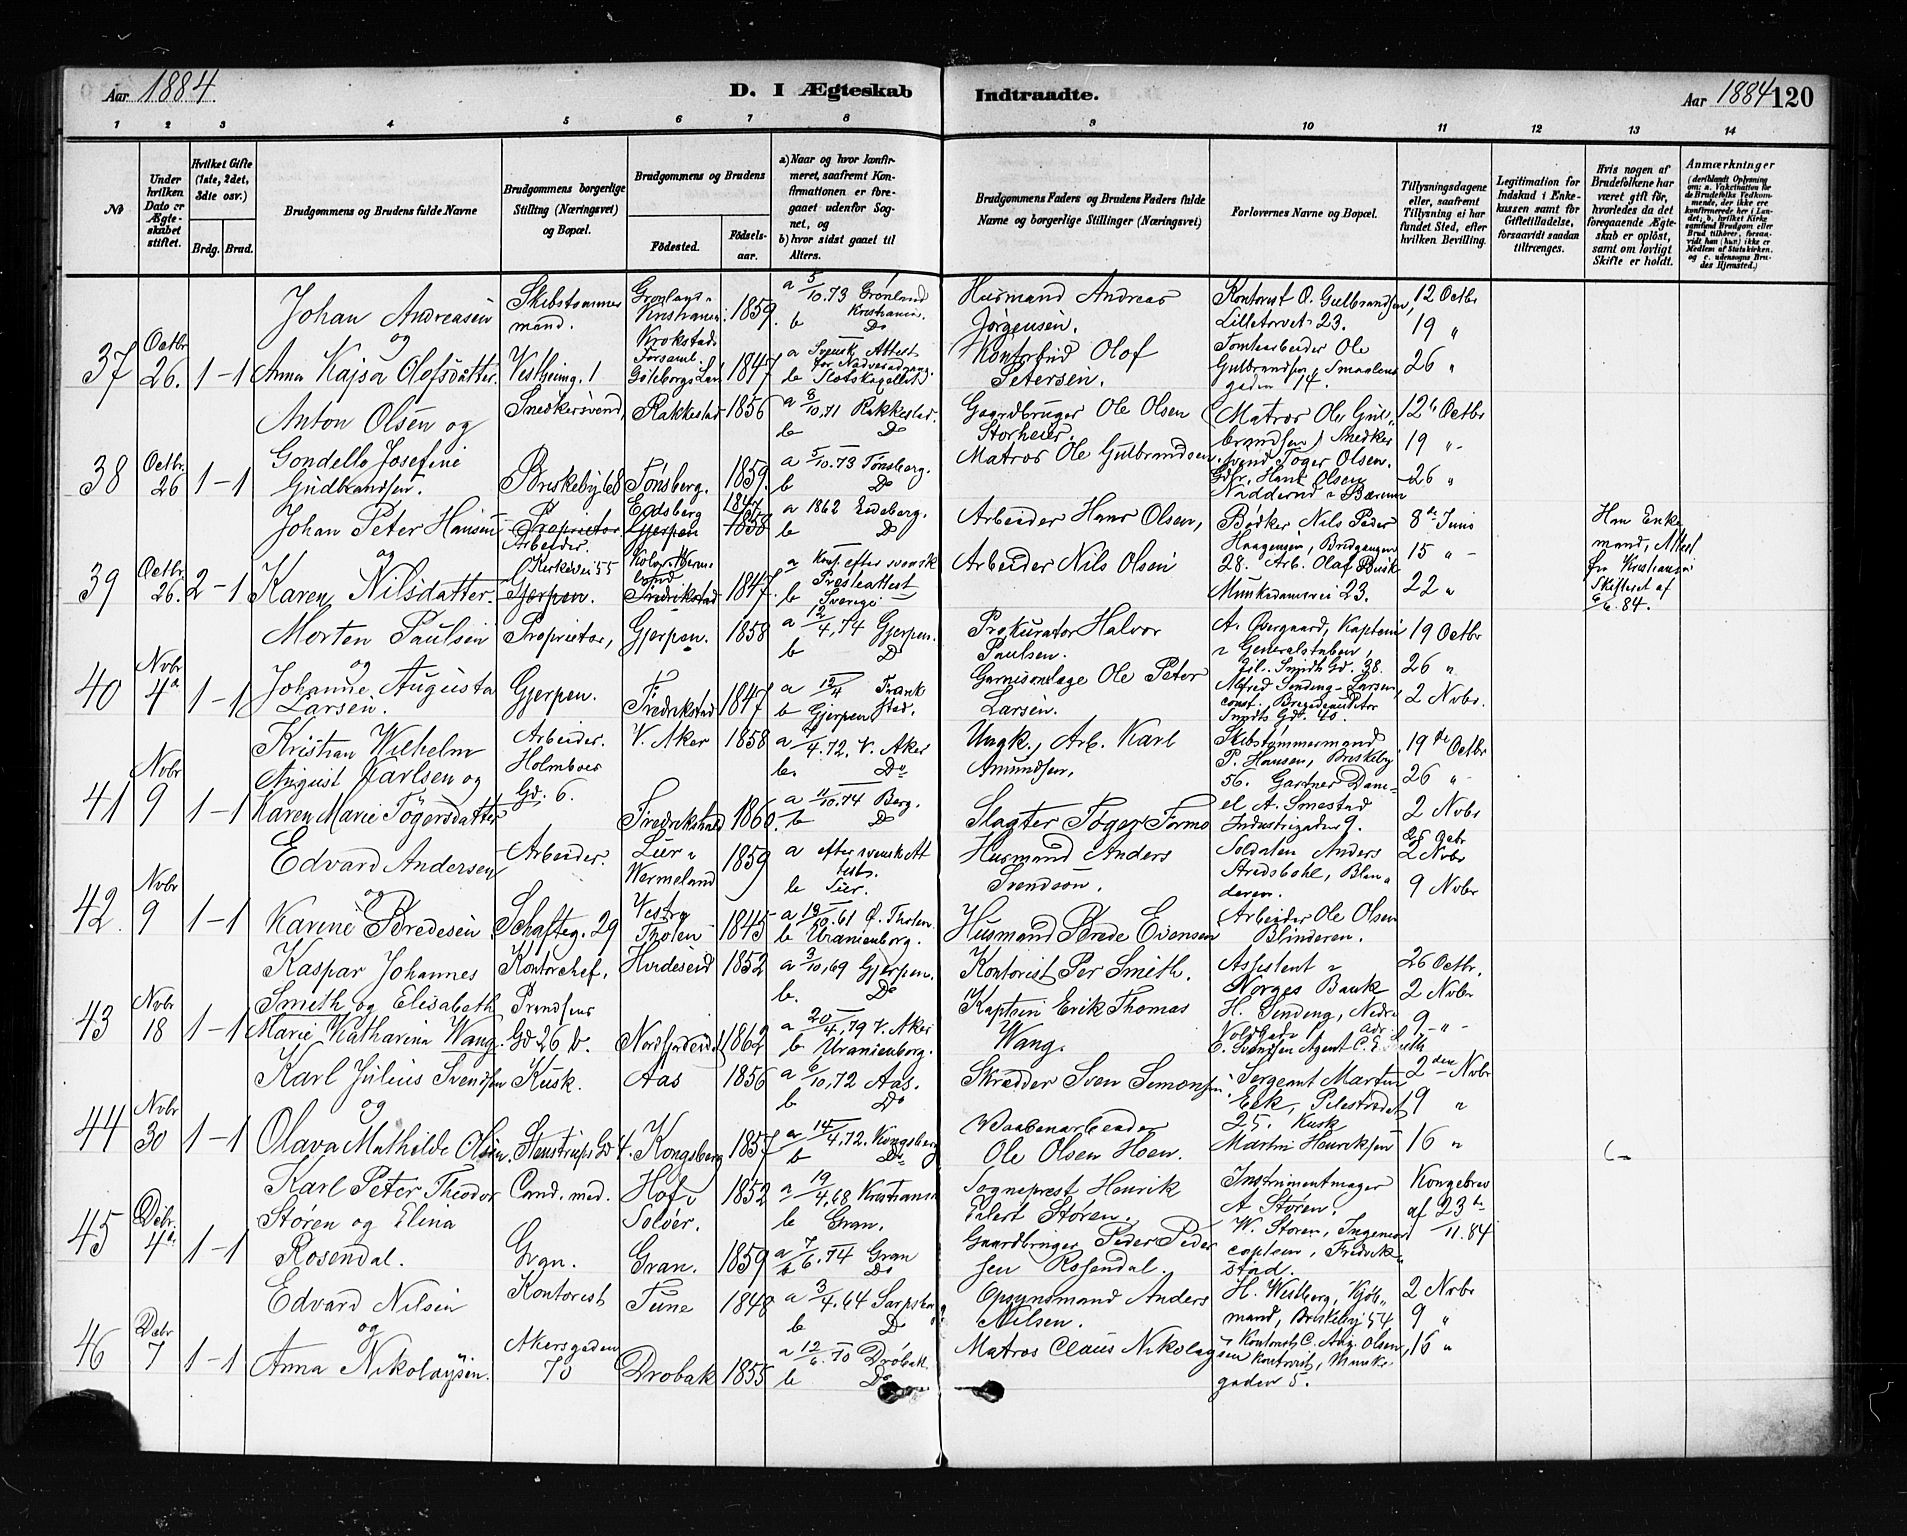 Aar 1884
D. I Ægteskab
Indtraadte.
Aar 1884 120
1 2 3 4 5 6 7 8 9 10 11 12 13 14
№
Under hvilken Dato er Ægteskabet stiftet.
Hvilket Gifte (1ste, 2det, 3die osv.)
Brdg. Brud.
Brudgommens og Brudens fulde Navne
Brudgommens borgerlige Stilling (Næringsvei) og Bopæl.
Brudgommens og Brudens
Födested.
Födselsaar.
a) Naar og hvor konfirmeret, saafremt Konfirmationen er foregaaet udenfor Sognet, og
b) hvor sidst gaaet til Alters.
Brudgommens Faders og Brudens Faders fulde Navne og borgerlige Stillinger (Næringsvei)
Forlovernes Navne og Bopæl.
Tillysningsdagene eller, saafremt Tillysning ei har fundet Sted, efter hvilken Bevilling.
Legitimation for Indskud i Enkekassen samt for Giftetilladelse, forsaavidt saadan tiltrænges.
Hvis nogen af Brudefolkene har været gift før, hvorledes da det foregaaende Ægteskab er oplöst, samt om lovligt Skifte er holdt.
Anmærkninger
37 Octbr 26. 1-1
Johan Andreasen
og
Anna Kajsa Olofsdatter
Skibstømmermand.
Vestheimg. 1
Kristiania
Krokstads Forsaml. Göteborgs Län
1859.
1847
a 5/10.73 Grönland Kristiania.
b Do
a Svensk Attest
b Slotskapellet
Husmand Andreas Jørgensen.
Olof Petersen.
Kontorist O. Gulbrandsen, Lilletorvet 23.
Tomtearbeider Ole Gulbrandsen, Smaalensgaden 14.
12 Octbr
19 "
26 "
38 Octbr 26 1-1
Anton Olsen og
Josefine Gudbrandsen.
Snedkersvend,
Briskeby 68
Rakkestad
Tönsberg.
1856
1859.
a 8/10.71 Rakkestad.
b Do
a 5/10.73 Tönsberg.
b Do
Gaardbruger Ole Olsen Storheier.
Matros Ole Gulbrandsen
(Matros Ole Gulbrandsen) Snedkersvend Töger Olsen.
Gbr. Hans Olsen Nadderud i Bærum
12te Octbr
19 "
26 "
39 Octbr. 26. 2-1
Johan Peter Hansen
og
Karen Nilsdatter.
Proprietor
Arbeider.
Kirkevei 55
Gjerpen.
Eidsberg
Gjerpen
Fredrikstad
1847
1858
1847.
a 1862 Eidsberg.
b Do
a Konf. efter svensk Presteattest
b Sverige
Arbeider Hans Olsen,
Arbeider Nils Olsen
Bödker Nils Peder Haagensen, Bredgangen 28. Arb. Olaf Busk Munkedamsvei 23.
8de Juni
15 " -
22 "
Han Enkemand, Attest fra Kristiania Skifteret af 6/6.84.
40 Nvbr 4de 1-1
Morten Paulsen
og
Johanne Augusta Larsen.
Proprietor,
Gjerpen.
Gjerpen.
Fredrikstad
1858
1847
a 12/4,74 Gjerpen.
b Do
a 12/4
b Gjerpen
Prokurator Halvor Paulsen.
Ole Peter Larsen.
A. Overgaard, Kaptein i Generalstaben, Pil. Smidts Gd. 38.
Alfred Sinding-Larsen, const. Brigadeauditør Smidts Gd. 40.
19 Octbr
26 "
2 Nvbr.
41 Nvbr 9 1-1
Kristian Wilhelm August Karlsen og
Karen Marie Tögersdatter
Arbeider.
Holmboes Gd. 6.
V. Aker
Fredrikshald
1858
1860.
a /4.72. V. Aker
b. Do
a 11/10.74 Berg.
b Do
Ungk., Arb. Karl Amundsen,
Slagter Töger Formo
Skibstømmermand P. Hansen, Briskeby 56. Gartner Daniel A. Smestad Industrigaden 9.
19de Octbr
26 " -
2 Nvbr
42. Nvbr 9 1-1
Edvard Andersen
og
Karine Bredesen
Arbeider.
Schafteg. 29
Wermeland
Vestre Thoten
1859
1845
a efter svensk Attest.
a 19/10.61 Ø. Thoten
b Uranienborg.
Husmand Anders Svendsön.
Husmand Brede Evensen
Soldaten Anders Stridsbøhl, Blinderen.
Arbeider Ole Olsen Blinderen.
26 Octbr
2 Nvbr
9 Nvbr
43 Nvbr 18 1-1
Kaspar Johannes Smith og Elisabeth Marie Katharina Wang.
Kontorchef,
Prindsens Gd 26 b.
Hvideseid
Nordfjordeid
1852
1862
a 3/10,69 Gjerpen.
b. Do
a 20/4,79 V. Aker
b Uranienborg.
Kontorist Per Smith.
Kaptein Erik Thomas Wang.
Assistent i Norges Bank H. Sinding, Nedre Voldgade
E. Svendsen Agent C. E.
26 Octbr.
2 Nvbr
9 - " -
44 Nvbr 30 1-1
Karl Julius Svendsen
og
Olava Mathilde Olsen.
Kusk.
Stenstrups Gd 4.
Aas
Kongsberg
1856
1857
a 6/10,72 Aas.
b Do
a 14/4.72. Kongsberg
b Do
Skrædder Sven Simonsen
Vaabenarbeider Ole Olsen Hoen.
Sergeant Martin Eek, Pilestrædet 25. Kusk Martin Henriksen
2den Nvbr
9 "
16 "
45 Debr. 4de 1-1
Karl Peter Theodor Stören og Elina Rosendal.
Cand. med.
Gran.
Hof i Solöer.
Gran.
1852
1859
a 19/4.68 Kristiania
b Gran.
a 7/6.74 Gran
b Do
Sogneprest Henrik Eilert Stören.
Gaardbruger Peder Pedersen Rosendal.
Instrumentmager A. Stören.
W. Stören, Ingeniørcaptein, Fredrikstad.
Kongebrev af 23de/11.84
46 Debr 7 1-1
Edvard Nilsen
og
Anna Nikolaysen.
Kontorist
Akersgaden 70
Tune
Dröbak
1848
1855
a 3/4.64 Sarpsborg
b Do
a 12/6.70 Dröbak
b Do
Opsynsmand Anders Nilsen.
Matros Claus Nikolaysen
H. Westberg, Kjöbmand, Briskeby 54
Kontorist C. Aug. Olsen,
gaden 5.
2 Nvbr
9 "
16 "